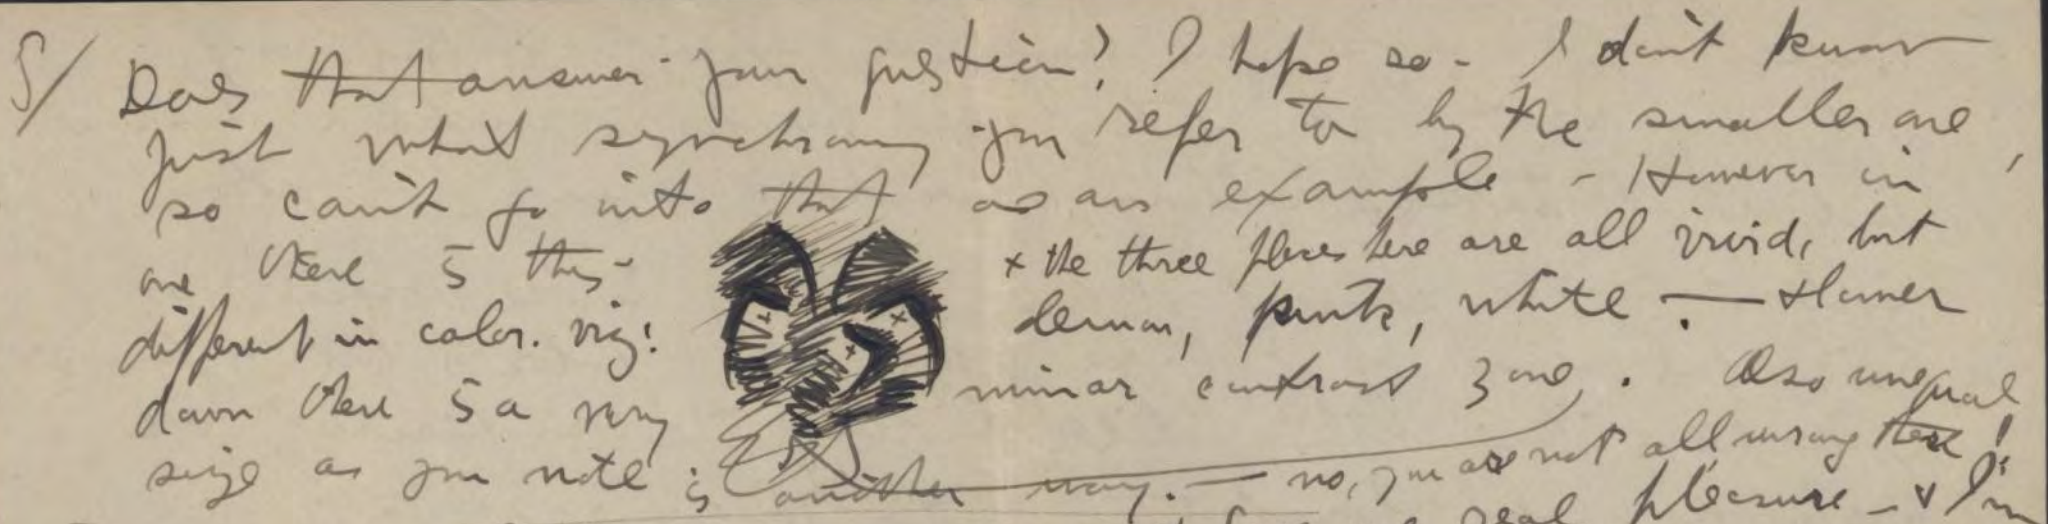 5/ Does that answer your question? I hope so - I don't know
just what synchromy you refer to by the smaller one,
so can't go into that as an example - However in
one there is this - x the three places here are all vivid, but
different in color. viz: lemon, pink, white. — + lower
down there is a very minor contrast zone. Also unequal
size as you note is another way. — no, you are not all wrong there!
real pleasure - & I'm